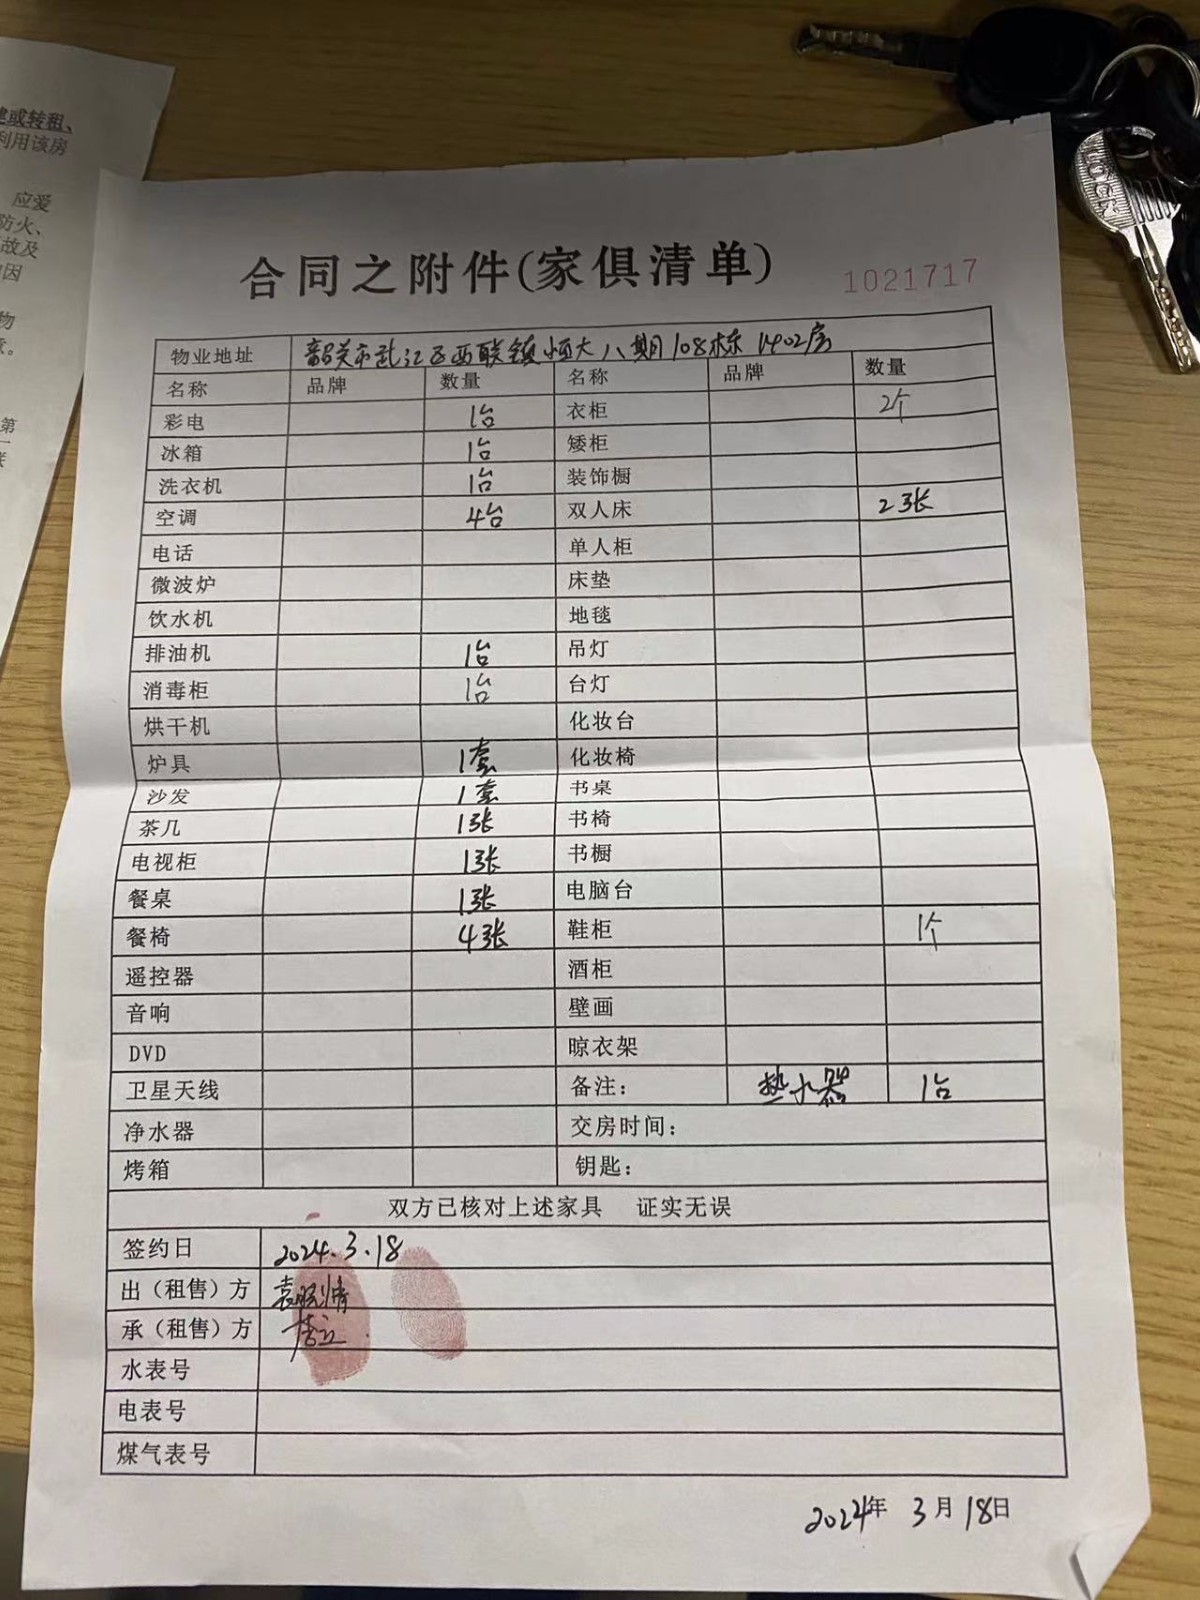 建或转租、
利用该房
应爱
防火、
故及
因
物
第
合同之附件(家俱清单)
1021717
物业地址 韶关市武江区西联镇恒大八期108栋1402房
名称 品牌 数量 名称 品牌 数量
彩电 1台 衣柜 2个
冰箱 1台 矮柜
洗衣机 1台 装饰橱
空调 4台 双人床 2张
电话 单人柜
微波炉 床垫
饮水机 地毯
排油机 1台 吊灯
消毒柜 1台 台灯
烘干机 化妆台
炉具 1套 化妆椅
沙发 1套 书桌
茶几 1张 书椅
电视柜 1张 书橱
餐桌 1张 电脑台
餐椅 4张 鞋柜 1个
遥控器 酒柜
音响 壁画
DVD 晾衣架
卫星天线 备注: 热水器 1台
净水器 交房时间:
烤箱 钥匙:
双方已核对上述家具 证实无误
签约日 2024.3.18
出（租售）方
承（租售）方
水表号
电表号
煤气表号
2024年 3月18日